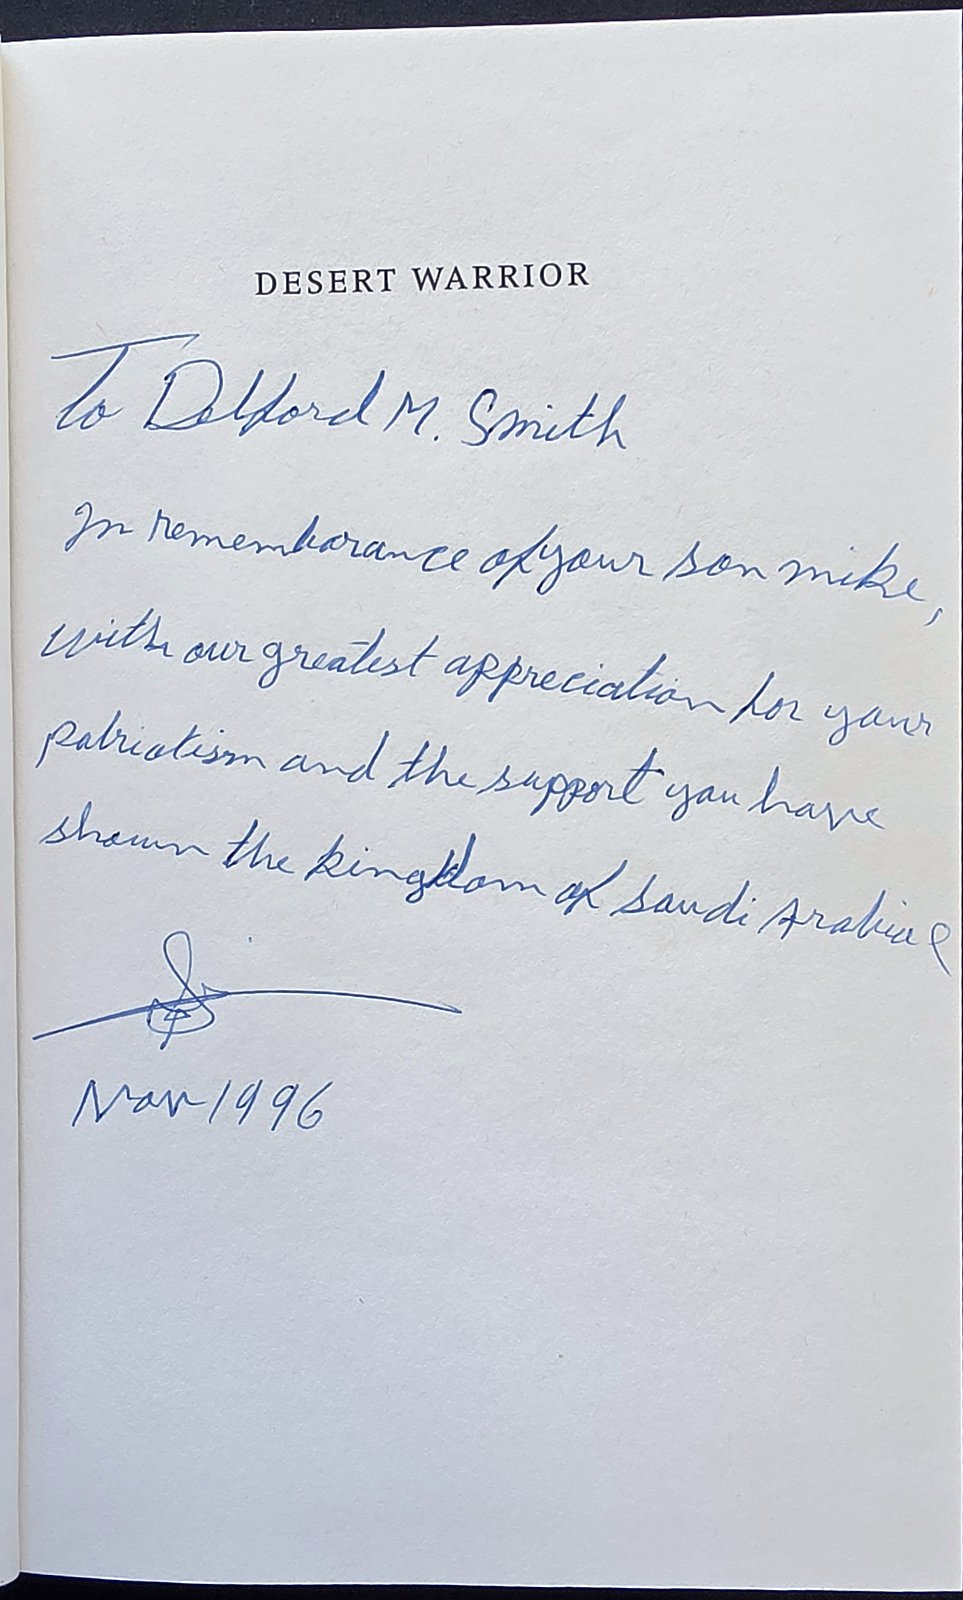 DESERT WARRIOR
To Delford M. Smith
In remembarance of your son mike,
with our greatest appreciation for your
patriotism and the support you have
shown the kingdom of saudi Arabia
Nov 1996